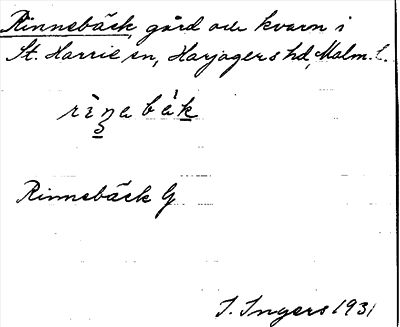 Rinnebäck, gård och kvarn i
St. Harrie sn, Harjagers hd, Malm. l.
rìnabák
Rinnebäck G
I. Ingers 1931